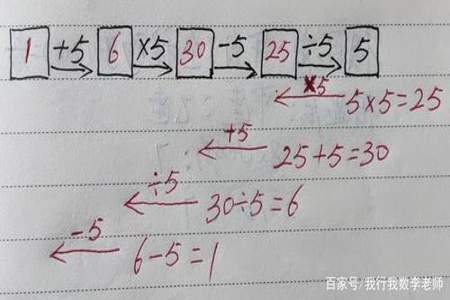 1 +5 6 ×5 30 -5 25 ÷5 5
×5 5×5=25
+5 25+5=30
÷5 30÷5=6
-5 6-5=1
百家号/我行我数李老师